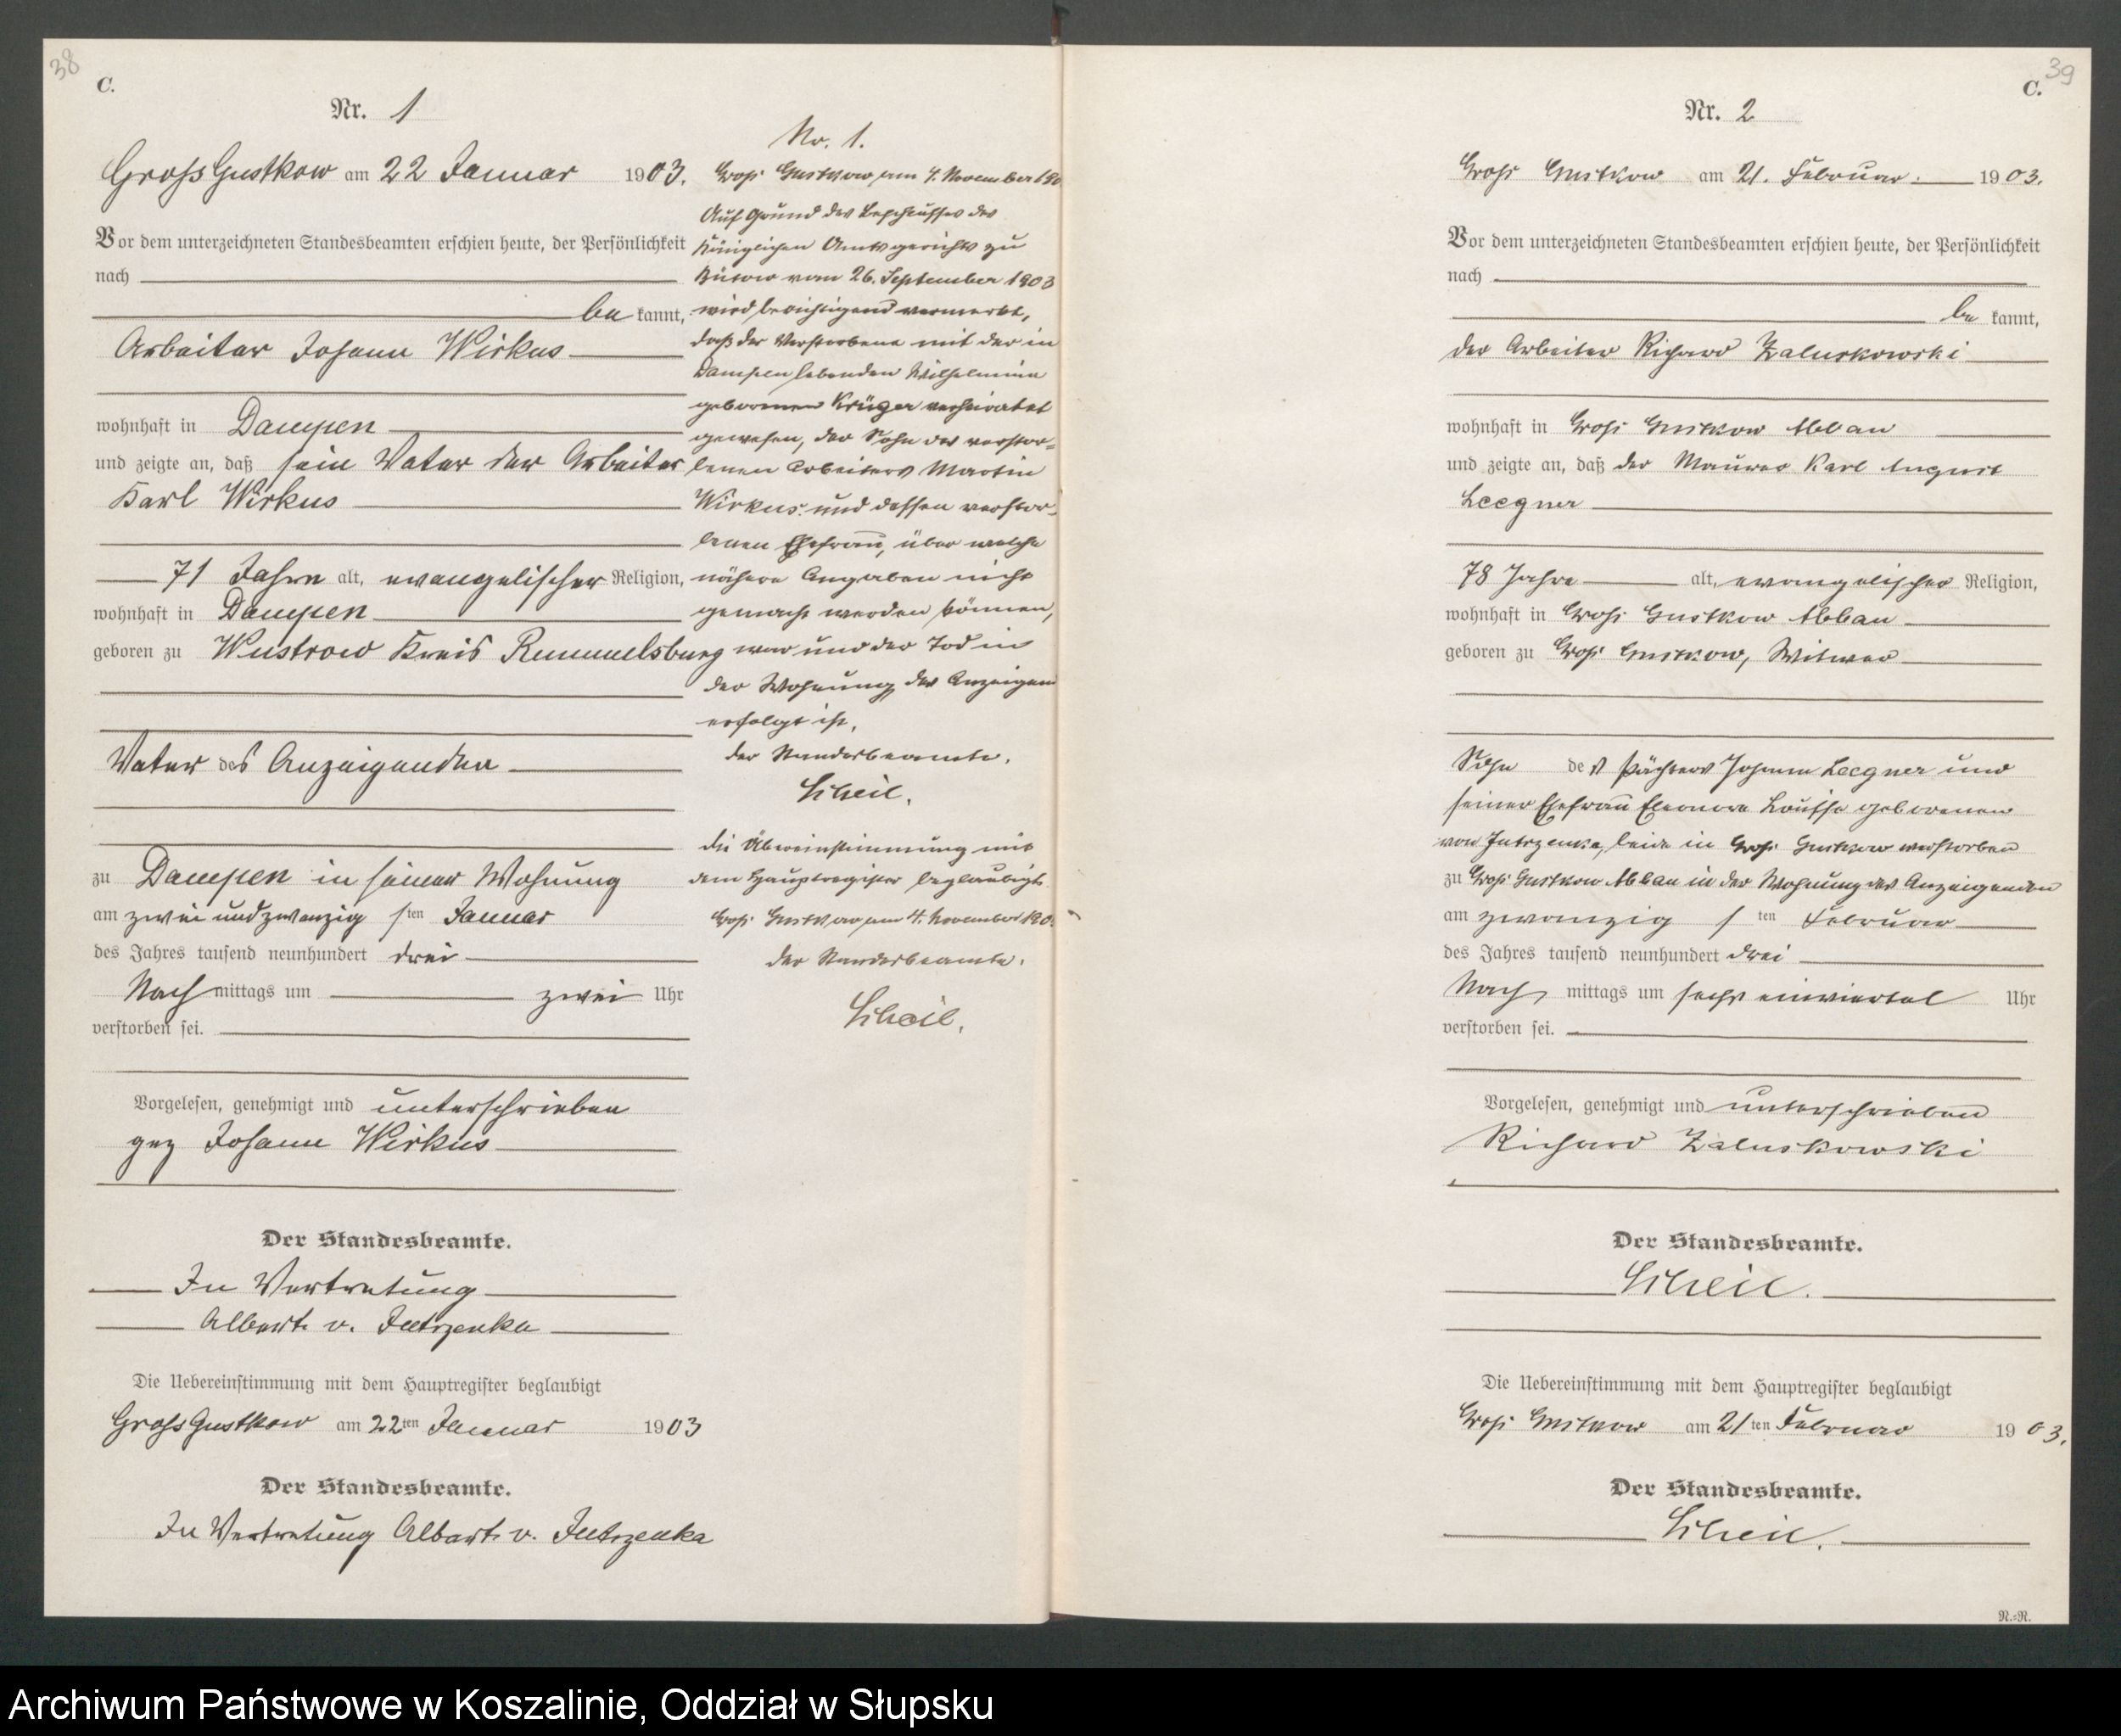 38
C.
Nr. 1
Groß Gustkow am 22 Januar 1903.
Vor dem unterzeichneten Standesbeamten erschien heute, der Persönlichkeit
nach
be kannt,
Arbeiter Johann Wirkus
wohnhaft in Dampen
und zeigte an, daß sein Vater der Arbeiter
Karl Wirkus
71 Jahre alt, evangelischer Religion,
wohnhaft in Dampen
geboren zu Wustrow Kreis Rummelsburg
Vater des Anzeigenden
zu Dampen in seiner Wohnung
am zwei und zwanzig sten Januar
des Jahres tausend neunhundert drei
Nach mittags um zwei Uhr
verstorben sei.
Vorgelesen, genehmigt und unterschrieben
gez Johann Wirkus
Der Standesbeamte.
In Vertretung
Albert v. Jutrzenka
Die Uebereinstimmung mit dem Hauptregister beglaubigt
Groß Gustkow am 22ten Januar 1903
Der Standesbeamte.
In Vertretung Albert v. Jutrzenka
No. 1.
Groß Gustkow, am 4. November 190
Auf Grund des Beschlusses des
Königlichen Amtsgerichts zu
Bütow vom 26. September 1903
wird berichtigend vermerkt,
daß der Verstorbene mit der in
Dampen lebenden Wilhelmine
geborenen Krüger verheiratet
gewesen, der Sohn des verstor-
benen Arbeiters Martin
Wirkus und dessen verstor-
benen Ehefrau, über welche
nähere Angaben nicht
gemacht werden können,
war und der Tod in
der Wohnung des Anzeigen
erfolgt ist.
Der Standesbeamte.
Scheil.
Die Übereinstimmung mit
dem Hauptregister beglaubigt
Groß Gustkow, am 4. November 190
Der Standesbeamte.
Scheil.
39
C.
Nr. 2
Groß Gustkow am 21. Februar 1903.
Vor dem unterzeichneten Standesbeamten erschien heute, der Persönlichkeit
nach
be kannt,
der Arbeiter Richard Zaluskowski
wohnhaft in Groß Gustkow Abbau
und zeigte an, daß der Maurer Karl August
Leegner
78 Jahre alt, evangelischer Religion,
wohnhaft in Groß Gustkow Abbau
geboren zu Groß Gustkow, Witwer
Sohn des Pächters Johann Leegner und
seiner Ehefrau Eleonore Louise geborenen
von Jutrzenka, beide in Groß Gustkow verstorben
zu Groß Gustkow Abbau in der Wohnung des Anzeigenden
am zwanzig sten Februar
des Jahres tausend neunhundert drei
Nach mittags um sechs einviertel Uhr
verstorben sei.
Vorgelesen, genehmigt und unterschrieben
Richard Zaluskowski
Der Standesbeamte.
Scheil.
Die Uebereinstimmung mit dem Hauptregister beglaubigt
Groß Gustkow am 21ten Februar 1903.
Der Standesbeamte.
Scheil.
N.=N.
Archiwum Państwowe w Koszalinie, Oddział w Słupsku